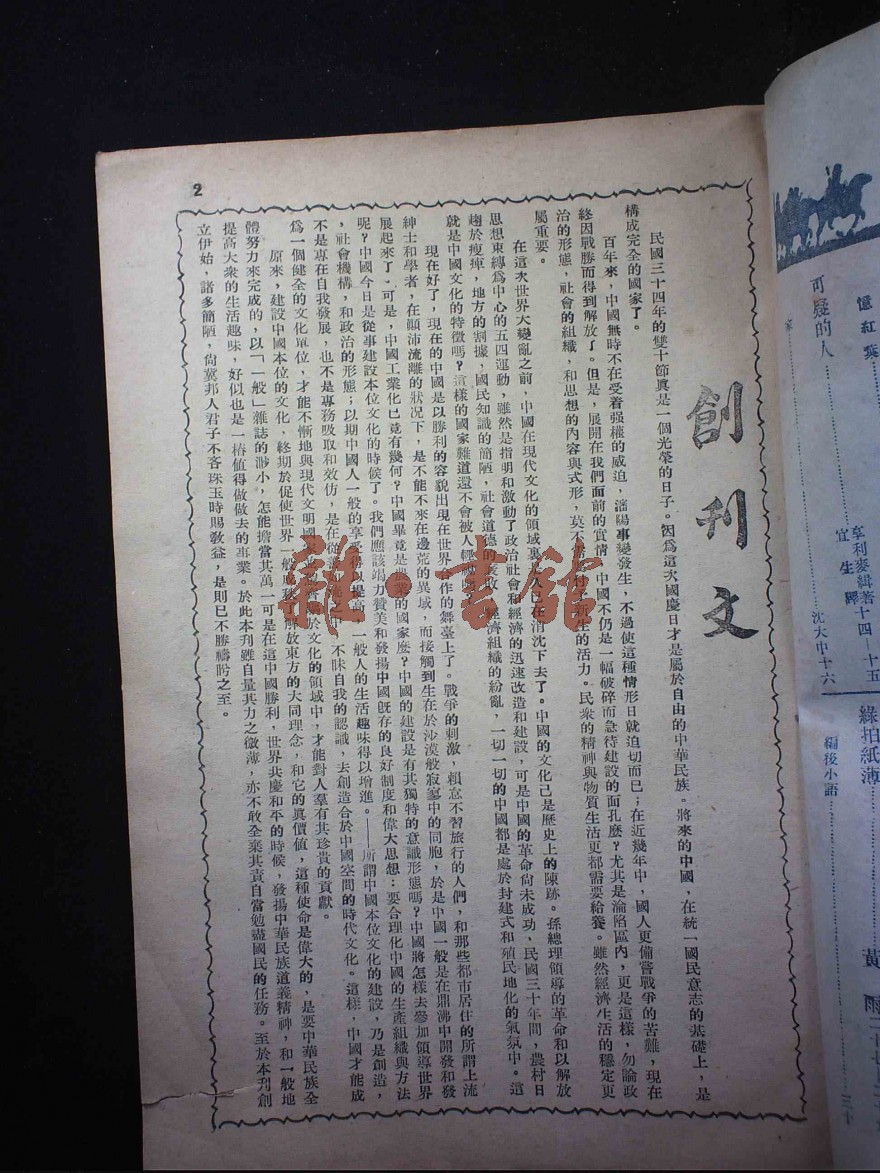 2
創刊文
民國三十四年的雙十節眞是一個光榮的日子。因爲這次國慶日才是屬於自由的中華民族。將來的中國，在統一國民意志的基礎上，是
構成完全的國家了。
百年來，中國無時不在受着强權的威迫，瀋陽事變發生，不過使這種情形日就迫切而已；在近幾年中，國人更備嘗戰爭的苦難，現在
終因戰勝而得到解放了。但是，展開在我們面前的實情，中國不仍是一幅破碎而急待建設的面孔麼？尤其是淪陷區內，更是這樣，勿論政
治的形態，社會的組織，和思想的內容與式形，莫不需要付予新生的活力。民衆的精神與物質生活更都需要給養。雖然經濟生活的穩定更
屬重要。
在這次世界大變亂之前，中國在現代文化的領域裏是人已在消沈下去了。中國的文化已是歷史上的陳跡。孫總理領導的革命和以解放
思想束縛爲中心的五四運動，雖然是指明和激動了政治社會和經濟的迅速改造和建設，可是中國的革命尙未成功，民國三十年間，農村日
趨於瘦瘠，地方的割據，國民知識的簡陋，社會道德的衰敗，經濟組織的紛亂，一切一切的中國都是處於封建式和殖民地化的氣氛中。這
就是中國文化的特徵嗎？這樣的國家難道還不會被人輕視
現在好了，現在的中國是以勝利的容貌出現在世界工作的舞臺上了。戰爭的刺激，賴怠不習旅行的人們，和那些都市居住的所謂上流
紳士和學者，在顚沛流離的狀況下，是不能不來在邊荒的異域，而接觸到生在於沙漠般寂寞中的同胞，於是中國一般是在鼎沸中開發和發
展起來了。可是，中國工業化已竟有幾何？中國畢竟是農業的國家麼？中國的建設是有其獨特的意識形態嗎？中國將怎樣去參加領導世界
呢？中國今日是從事建設本位文化的時候了。我們應該竭力贊美和發揚中國旣存的良好制度和偉大思想：要合理化中國的生產組織與方法
，社會機構，和政治的形態；以期中國人一般的享受得以提高，一般人的生活趣味得以增進。——所謂中國本位文化的建設，乃是創造，
不是專在自我發展，也不是專務吸取和效仿，是在從 不昧自我的認識，去創造合於中國空間的時代文化。這樣，中國才能成
爲一個健全的文化單位，才能不慚地與現代文明國家 於文化的領域中，才能對人羣有其珍貴的貢獻。
原來，建設中國本位的文化，終期於促使世界一般 了解放東方的大同理念，和它的眞價值，這種使命是偉大的，是要中華民族全
體努力來完成的，以「一般」雜誌的渺小，怎能擔當其萬一可是在這中國勝利，世界共慶和平的時候，發揚中華民族道義精神，和一般地
提高大衆的生活趣味，好似也是一樁值得做做去的事業。於此本刊雖自量其力之微薄，亦不敢全棄其責自當勉盡國民的任務。至於本刊創
立伊始，諸多簡陋，尙冀邦人君子不吝珠玉時賜敎益，是則已不勝禱盼之至。
雜·書館
憶紅葉
可疑的人
亨利麥緝著 十四—十五
宜生譯
沈大中 十六
綠拍紙薄
編後小語
黃雨
三十